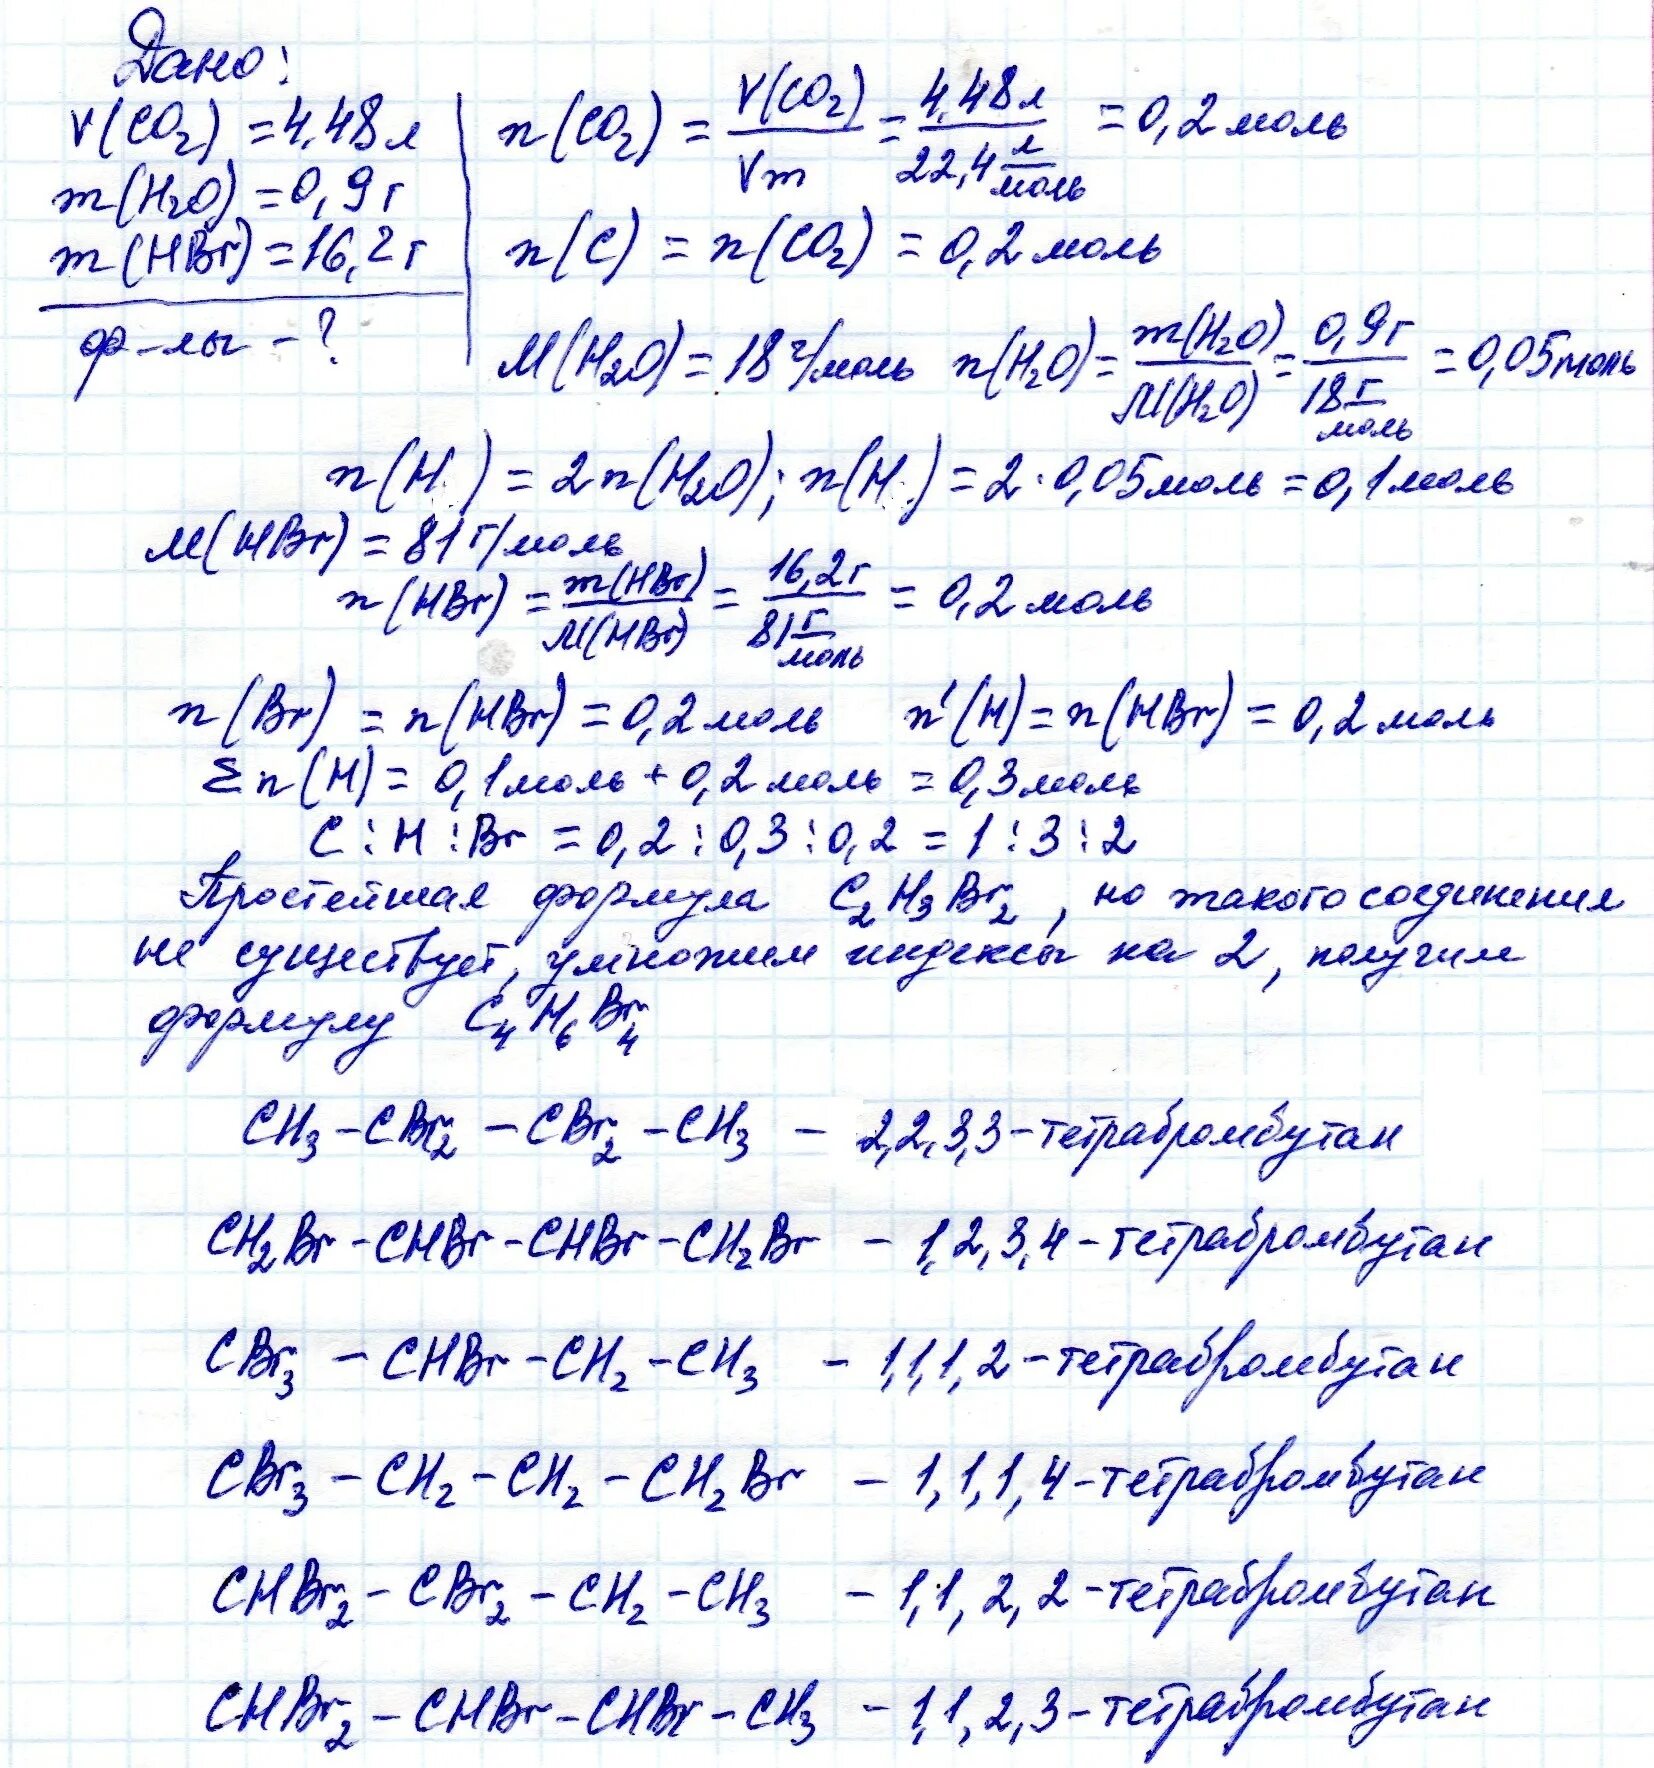 Дано:
V(CO₂) = 4,48 л
m(H₂O) = 0,9 г
m(HBr) = 16,2 г
ф-лы - ?
n(CO₂) = V(CO₂)/Vm = 4,48 л/22,4 л/моль = 0,2 моль
n(C) = n(CO₂) = 0,2 моль
M(H₂O) = 18 г/моль n(H₂O) = m(H₂O)/M(H₂O) = 0,9 г/18 г/моль = 0,05 моль
n(H) = 2n(H₂O); n(H) = 2·0,05 моль = 0,1 моль
M(HBr) = 81 г/моль
n(HBr) = m(HBr)/M(HBr) = 16,2 г/81 г/моль = 0,2 моль
n(Br) = n(HBr) = 0,2 моль n'(H) = n(HBr) = 0,2 моль
Σn(H) = 0,1 моль + 0,2 моль = 0,3 моль
C : H : Br = 0,2 : 0,3 : 0,2 = 1 : 3 : 2
Простейшая формула C₂H₃Br₂, но такого соединения
не существует, умножим индексы на 2, получим
формулу C₄H₆Br₄
CH₃ – CBr₂ – CBr₂ – CH₃ – 2,2,3,3-тетрабромбутан
CH₂Br – CHBr – CHBr – CH₂Br – 1,2,3,4-тетрабромбутан
CBr₃ – CHBr – CH₂ – CH₃ – 1,1,1,2-тетрабромбутан
CBr₃ – CH₂ – CH₂ – CH₂Br – 1,1,1,4-тетрабромбутан
CHBr₂ – CBr₂ – CH₂ – CH₃ – 1,1,2,2-тетрабромбутан
CHBr₂ – CHBr – CHBr – CH₃ – 1,1,2,3-тетрабромбутан